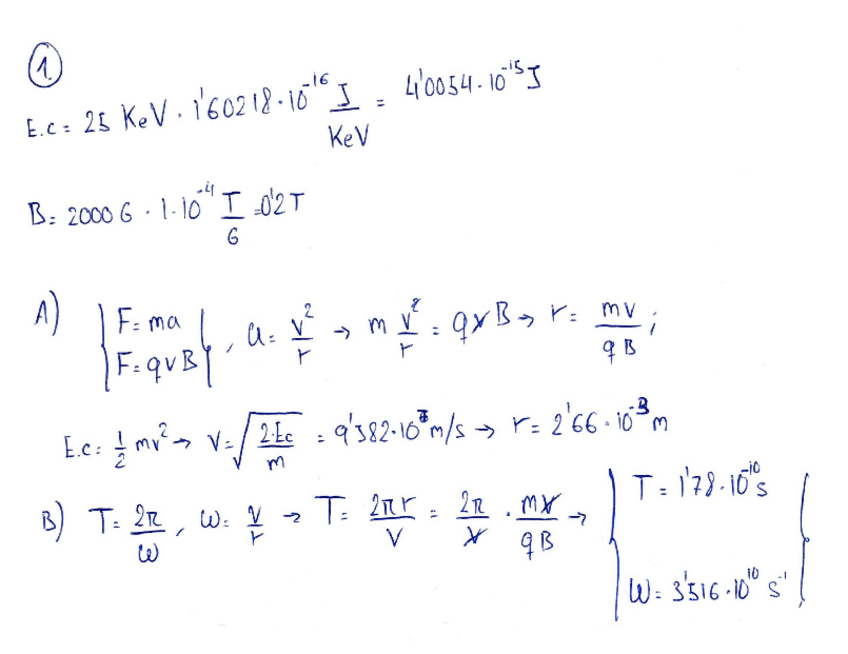 1.
E.c = 25 KeV · 1'60218·10^-16 J/KeV = 4'0054·10^-15 J
B = 2000 G · 1·10^-4 T/G = 0'2 T
A) { F = ma, F = qvB }, a = v^2/r → m v^2/r = qvB → r = mv/qB ;
E.c = 1/2 mv^2 → v = √(2·Ec/m) = 9'382·10^7 m/s → r = 2'66·10^-3 m
B) T = 2π/ω, ω = v/r → T = 2πr/v = 2π/v · mv/qB → { T = 1'78·10^-10 s, ω = 3'516·10^10 s^-1 }